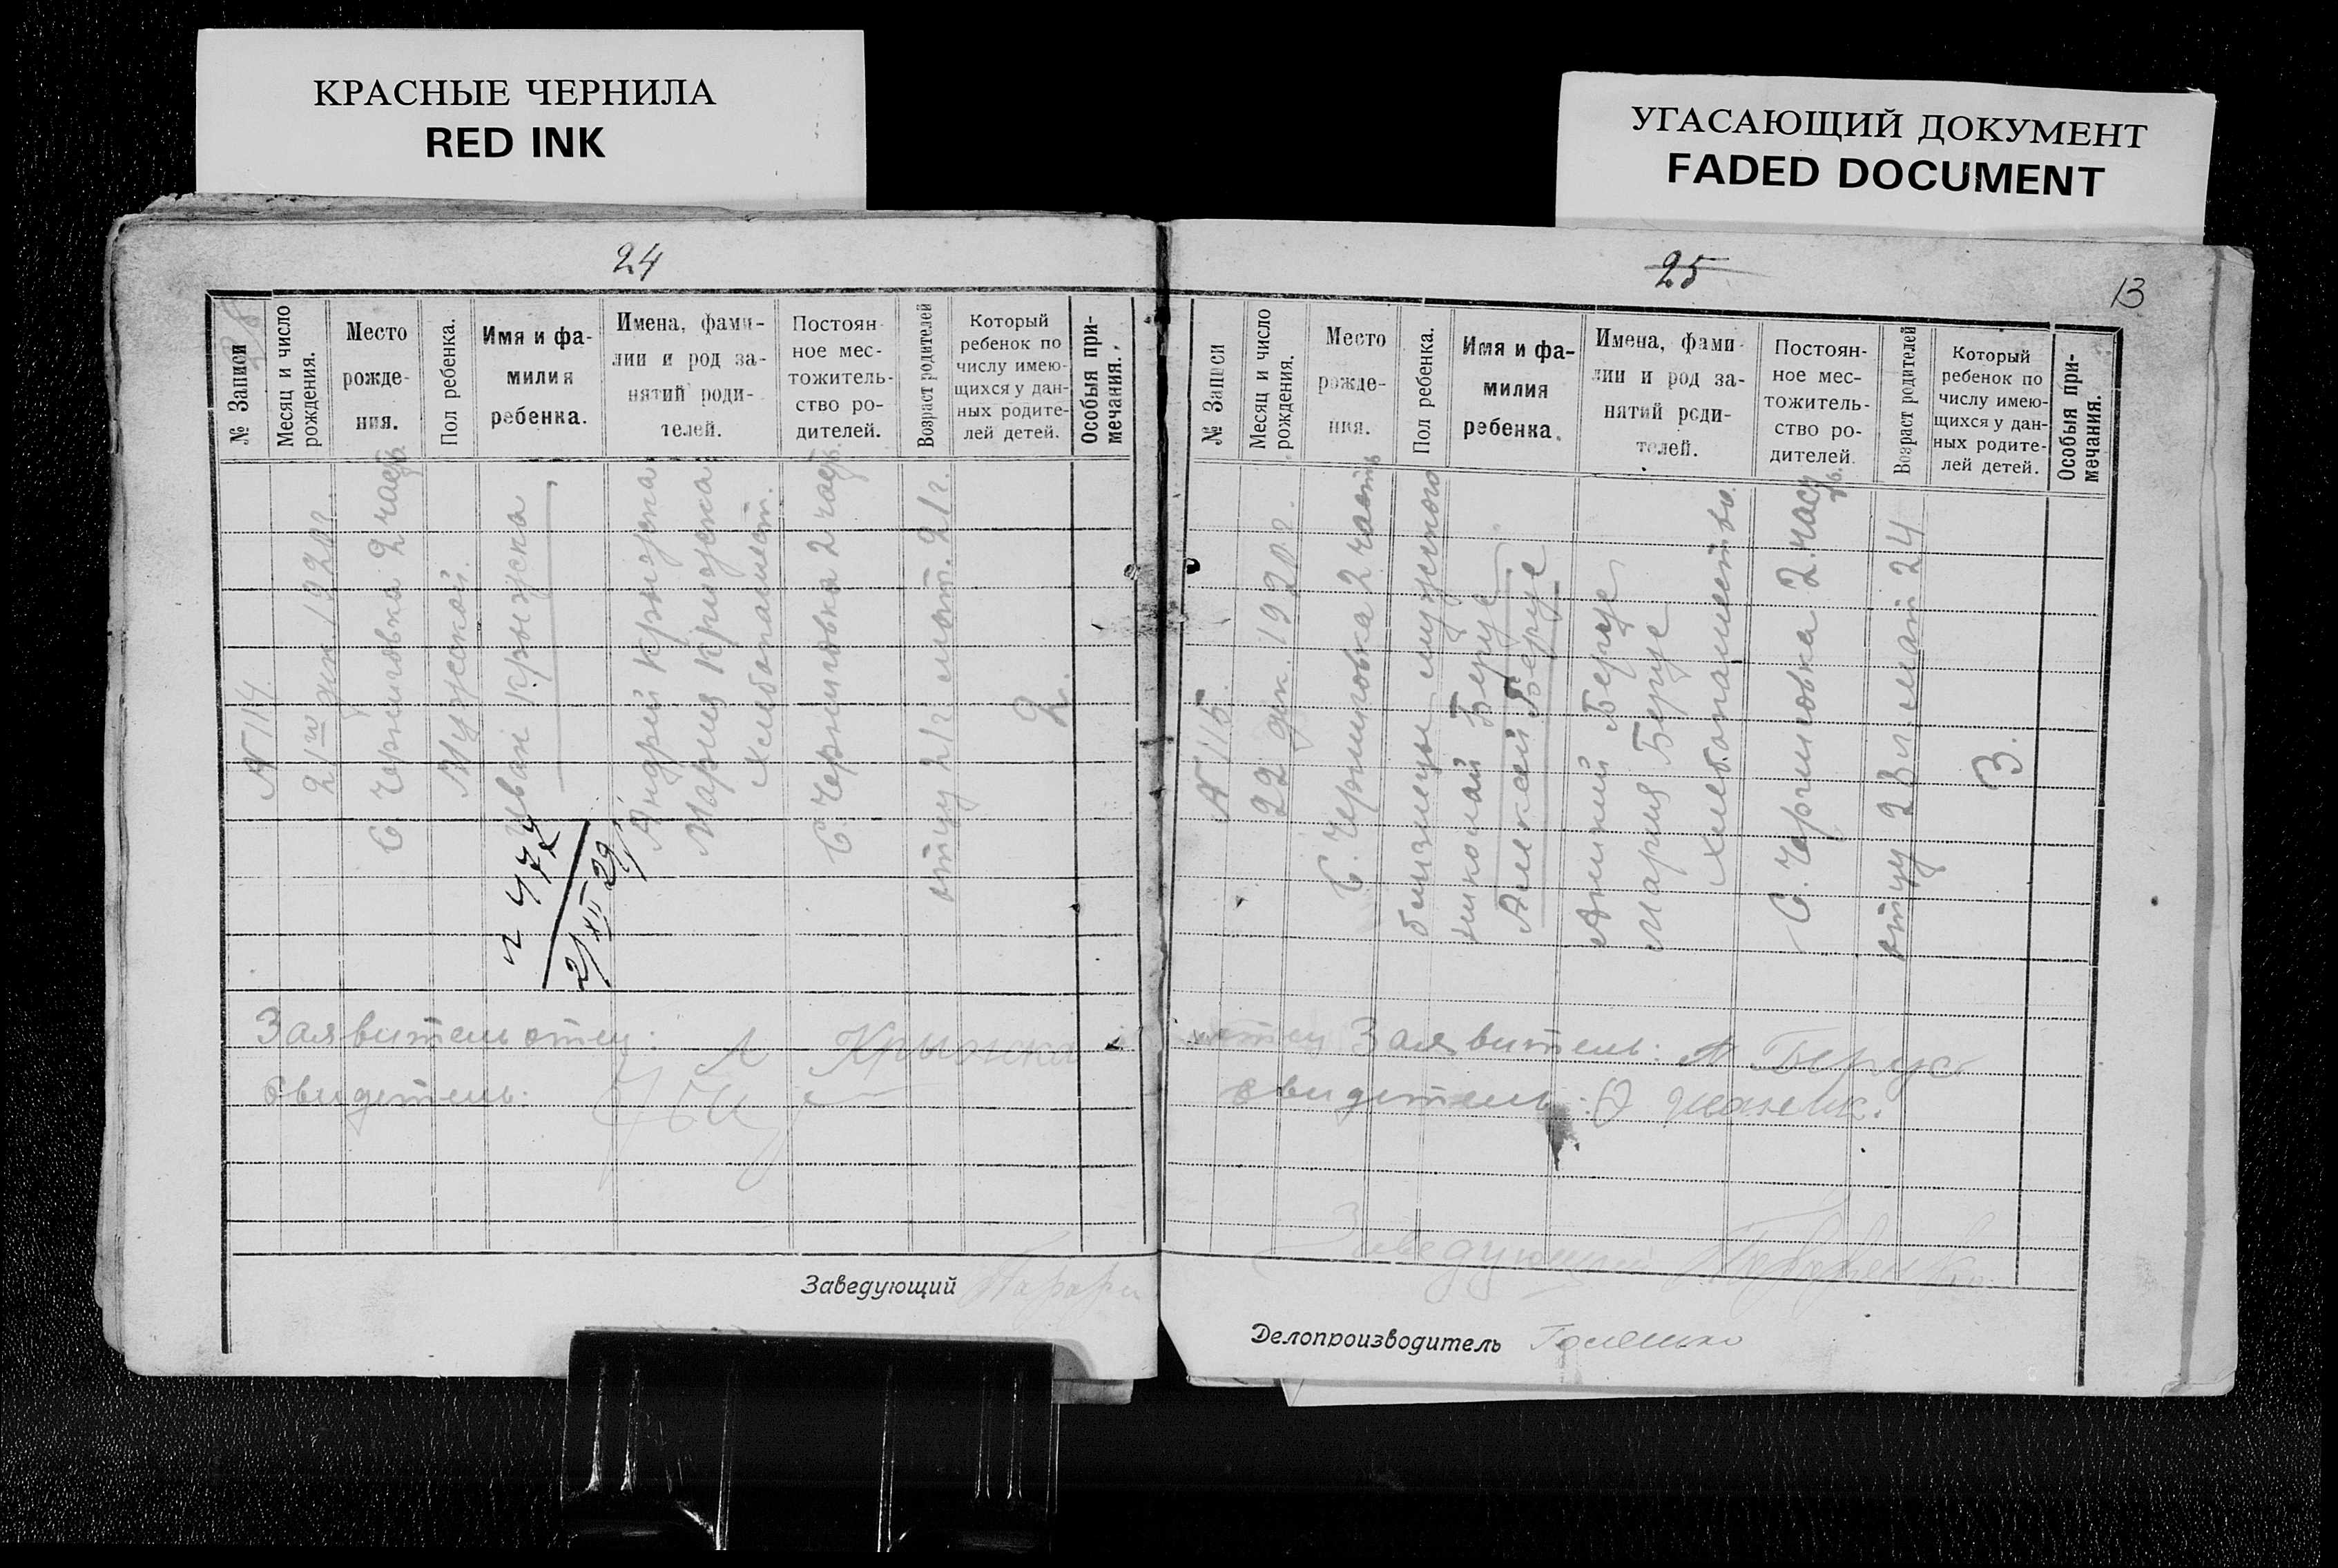 КРАСНЫЕ ЧЕРНИЛА
RED INK
УГАСАЮЩИЙ ДОКУМЕНТ
FADED DOCUMENT
24
№ Записи
Месяц и число
рождения.
Место
рожде-
ния.
Пол ребенка.
Имя и фа-
милия
ребенка.
Имена, фами-
лии и род за-
нятий роди-
телей.
Постоян-
ное мес-
тожитель-
ство ро-
дителей.
Возраст родителей
Который
ребенок по
числу имею-
щихся у дан-
ных родите-
лей детей.
Особыя при-
мечания.
№ 114.
21го дек. 1920 г.
С. Черниговка 2 часть
Мужской.
Иван Крыжска
Андрей Крыжска
Мария Крыжска
Хлебопашест.
С. Черниговка 2 часть.
отцу 21 г. мат. 21 г.
2.
2/XII 29
Заявитель отец: А Крыжска
Свидетель:
Заведующий
25
13
№ Записи
Месяц и число
рождения.
Место
рожде-
ния.
Пол ребенка.
Имя и фа-
милия
ребенка.
Имена, фами-
лии и род за-
нятий роди-
телей.
Постоян-
ное мес-
тожитель-
ство ро-
дителей.
Возраст родителей
Который
ребенок по
числу имею-
щихся у дан-
ных родите-
лей детей.
Особыя при-
мечания.
№ 115.
22 дек. 1920 г.
С. Черниговка 2 часть
близнецы мужского
Николай Беруе
Алексей Беруе
Аникий Беруе
Мария Беруе
хлебопашество.
С. Черниговка 2 часть.
отцу 23 г. мат 24
3.
отец Заявитель: А Беруе
свидетель:
Заведующий
Делопроизводитель